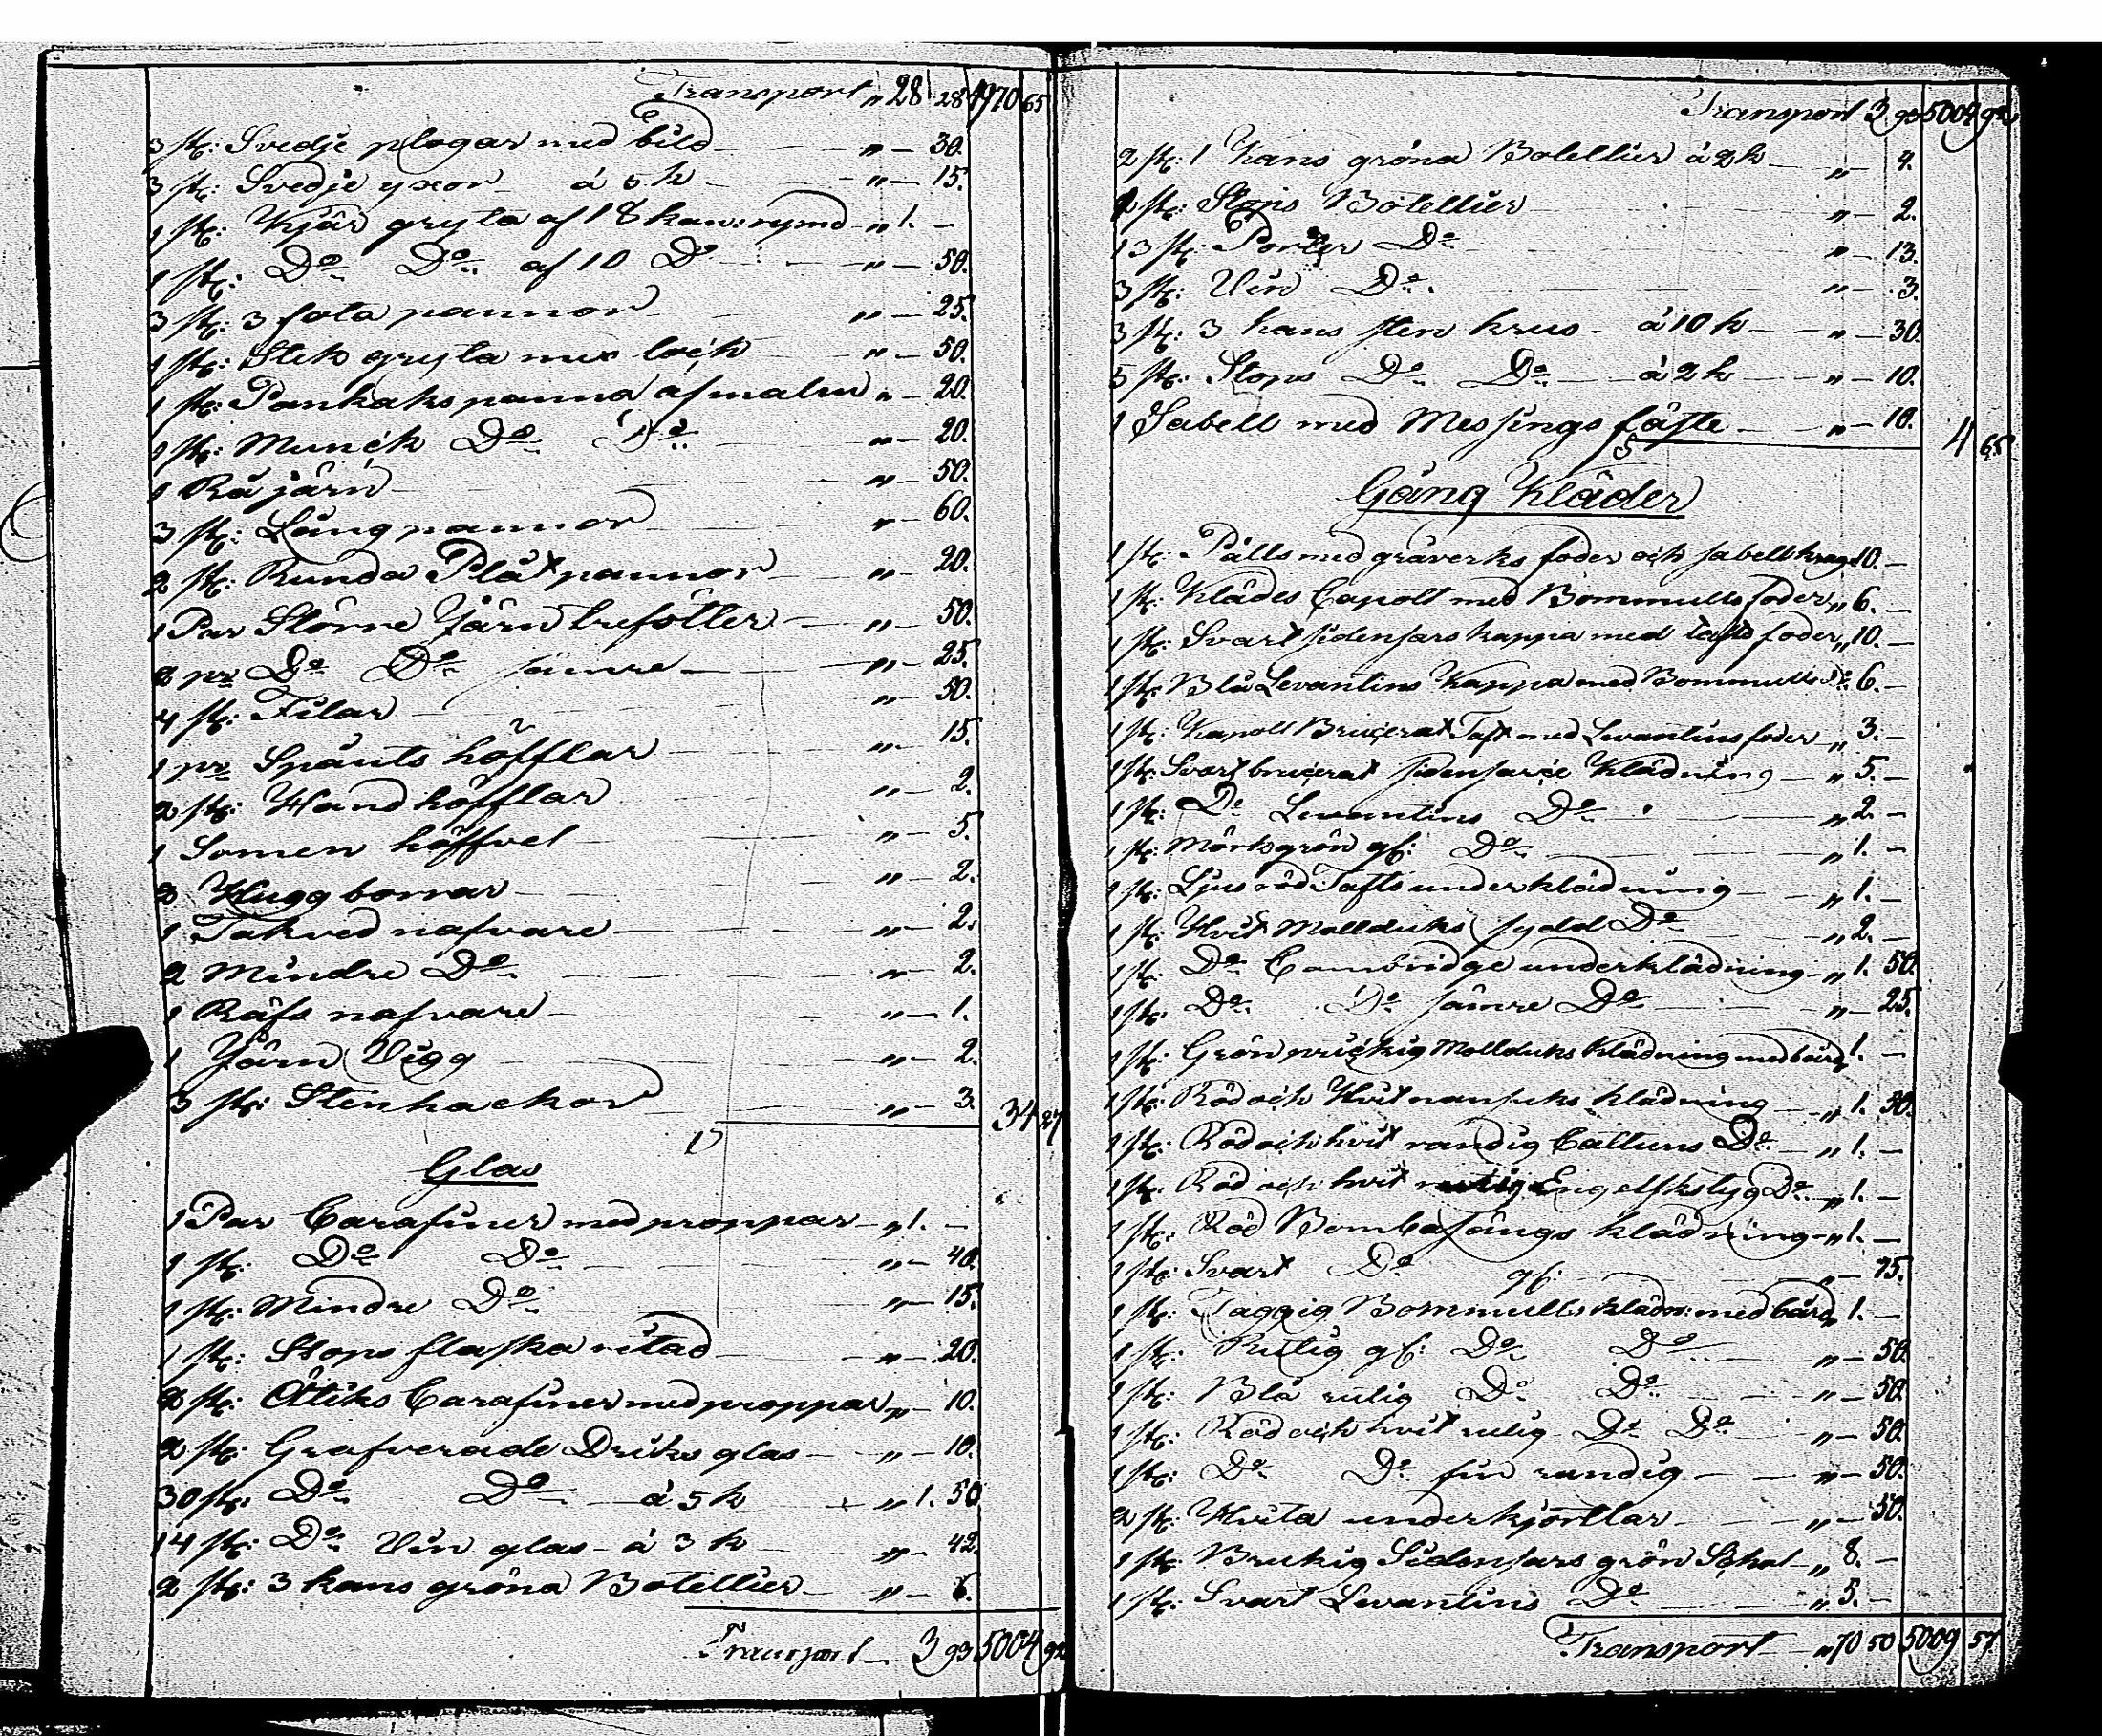 Transport „ 28 28 4970 65
3 st: Svedje plogar med bild „ — 30.
3 st: Svedje yxor á 5 k „ — 15.
1 st: Kjär gryta af 18 kan: rymd „ 1. —
1 st: Do Do af 10 Do „ — 50.
3 st: 3 fota pannor „ — 25.
1 st: Stek gryta med lock „ — 50.
1 st: Pankaks panna af malm „ — 20.
1 st: Munck Do Do „ — 20.
1 Rå järn „ — 50.
3 st: Lång pannor „ — 60.
2 st: Runda Plåt pannor „ — 20.
1 Par Större Järn trefötter „ — 50.
2 pr Do Do sämre „ — 25.
4 st: Filar „ — 50.
1 pr Spånts höfflar „ — 15.
2 st: Hand höfflar „ — 2.
1 Somen höffvel „ — 5.
3 Hugg borrar „ — 2.
1 Takved nafvare „ — 2.
2 Mindre Do „ — 2.
1 Räfs nafvare „ — 1.
1 Järn Vigg „ — 2.
3 st: Stenhackor „ — 3. 34 27
Glas
1 Par Carafiner med proppar „ 1. —
1 st: Do Do „ — 40.
1 st: Mindre Do „ — 15.
1 st: Stops flaska ritad „ — 20.
2 st: Ätiks Carafiner med proppar „ — 10.
2 st: Grafverade Driks glas „ — 10.
30 st: Do Do á 5 k „ 1. 50.
14 st: Do Vin glas á 3 k „ — 42.
2 st: 3 kans gröna Botellier „ — 6.
Transport 3 93 5004 92
Transport 3 93 5004 92
2 st: 1 Kans gröna Botellier á 2 k „ — 4.
2 st: Stops Botellier „ — 2.
13 st: Porter Do „ — 13.
3 st: Vin Do „ — 3.
3 st: 3 kans sten krus á 10 k „ — 30.
5 st: Stops Do Do á 2 k „ — 10.
1 Sabell med Messings fäste „ — 10. 4 65
Gång Kläder
1 st: Pälls med gråverks foder och sabell krage 10. —
1 st: Klädes Capott med Bommulls foder „ 6. —
1 st: Svart sidensars kappa med tafts foder „ 10. —
1 st: Blå Levantins Kappa med Bommulls Do 6. —
1 st: Kapott Brucerat Taft med Levantins foder „ 3. —
1 st: Svart brucerat sidensarce Klädning „ 5. —
1 st: Do Levantins Do „ 2. —
1 st: Mörkgrön gf: Do „ 1. —
1 st: Ljus röd Tafts underklädning „ 1. —
1 st: Hvit Mollduks sydd Do „ 2. —
1 st: Do Cambridge underklädning „ 1. 50.
1 st: Do Do sämre Do „ — 25.
1 st: Grön prickig Mollduks Klädning med bård 1. —
1 st: Röd och Hvit nansuks klädning „ 1. 50.
1 st: Röd och hvit randig Cattuns Do „ 1. —
1 st: Röd och hvit Engelskstyg Do „ 1. —
1 st: Röd Bombasängs klädning „ 1. —
1 st: Svart Do gf: „ — 75.
1 st: Taggig Bommulls klädn: med bård „ 1. —
1 st: Rutig gf: Do Do „ — 50.
1 st: Blå rutig Do Do „ — 50.
1 st: Röd och hvit rutig Do Do „ — 50.
1 st: Do Do fin randig „ — 50.
2 st: Hvita underkjortlar „ — 50.
1 st: Brukig Sidensars grön Schal „ 8. —
1 st: Svart Levantins Do „ 5. —
Transport „ 70 50 5009 57